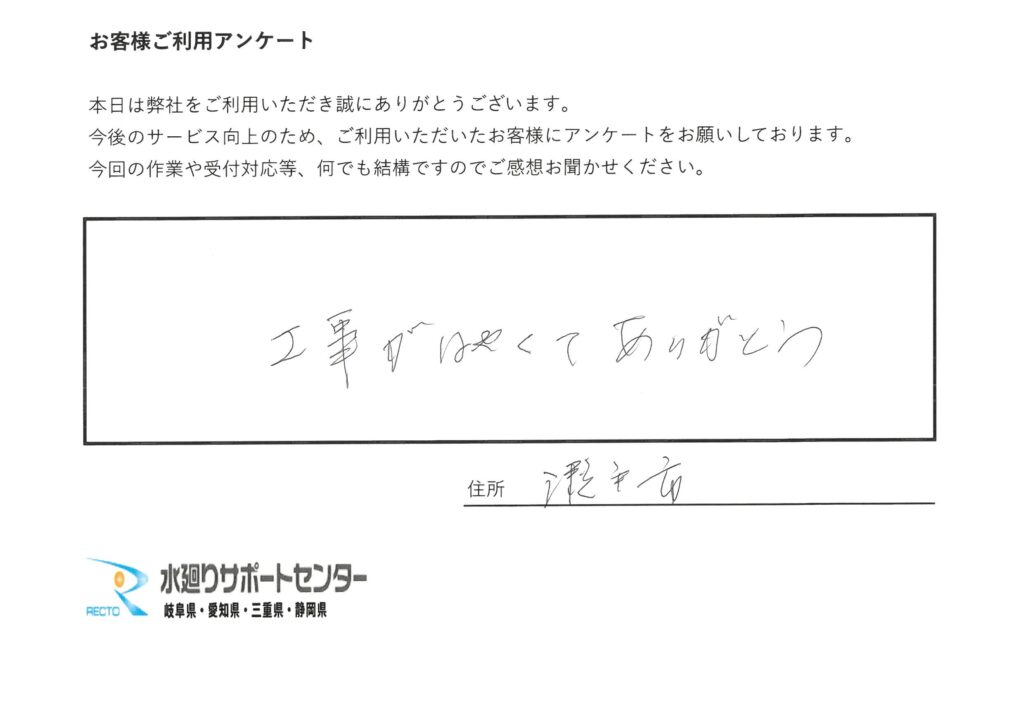 お客様ご利用アンケート
本日は弊社をご利用いただき誠にありがとうございます。
今後のサービス向上のため、ご利用いただいたお客様にアンケートをお願いしております。
今回の作業や受付対応等、何でも結構ですのでご感想お聞かせください。
工事がはやくてありがとう
住所 瀬戸市
RECTO 水廻りサポートセンター
岐阜県・愛知県・三重県・静岡県